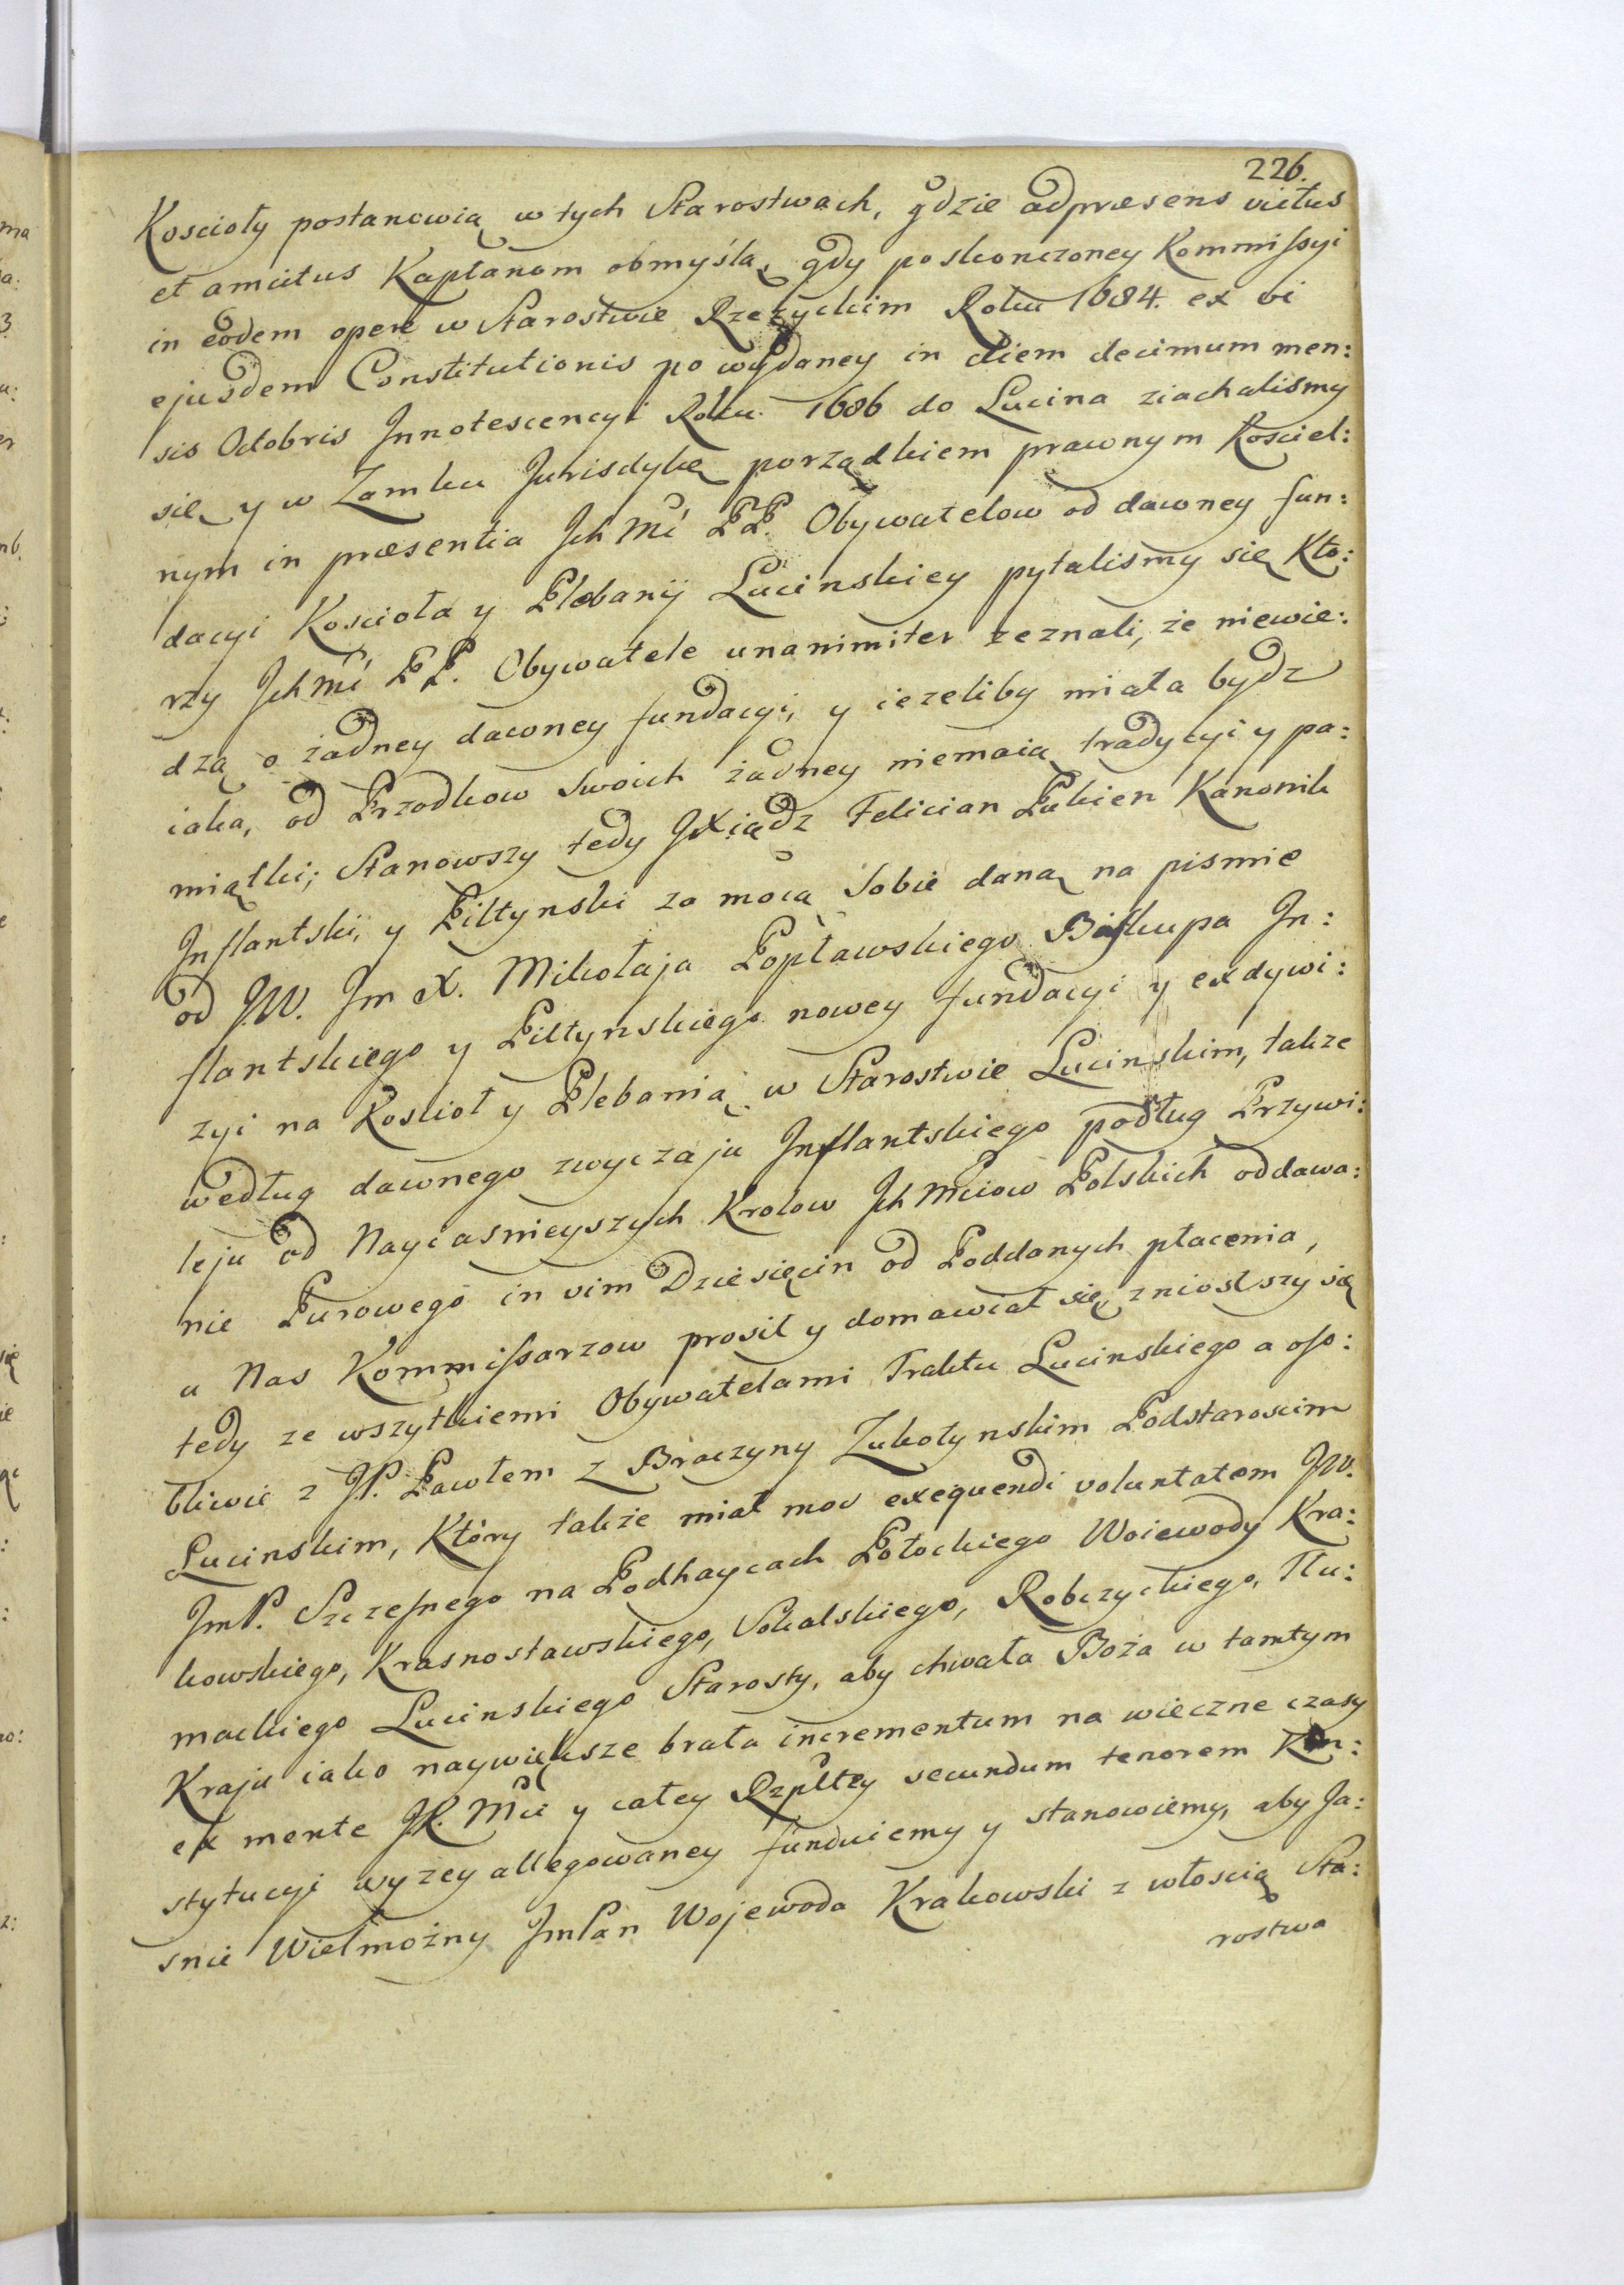 226.
Koscioły postanowią w tych Starostwach, gdzie ad præsens victus
et amictus Kapłanom obmyślą, gdy po skonczoney Kommissyi
in eodem opere w Starostwie Rzeżyckim Roku 1684. ex vi
ejusdem Constitutionis po wydaney in diem decimum men:
sis Octobris Innotescencyi Roku 1686 do Lucina ziachalismy
się y w Zamku Jurisdykę porządkiem prawnym Kosciel:
nym in præsentia Ich Mć PP. Obywatelow od dawney fun:
dacyi Koscioła y Plebanij Lucinskiey pytalismy się Kto:
rzy Ichmć PP. Obywatele unanimiter zeznali, że niewie:
dzą o żadney dawney fundacyi, y ieżeliby miała bydz
iaka, od Przodkow Swoich żadney niemaią tradycyi y pa:
miątki; Stanowszy tedy JXiądz Felician Pukien Kanonik
Inflantski, y Piltynski za mocą Sobie daną na pismie
od JW. Jm X. Mikołaja Popławskiego Biskupa In:
flantskiego y Piltynskiego nowey fundacyi y exdywi:
zyi na Koscioł y Plebanią w Starostwie Lucinskim, także
według dawnego zwyczaju Inflantskiego podług Przywi:
leju od Nayiasnieyszych Krolow Ich Mciow Polskich oddawa:
nie Purowego in vim Dziesięcin od Poddanych płacenia,
u Nas Kommissarzow prosił y domawiał się, zniosłszy się
tedy ze wszytkiemi Obywatelami Traktu Lucinskiego a oso:
bliwie z JP. Pawłem z Braczyny Zukotynskim Podstaroscim
Lucinskim, Który także miał moc exequendi voluntatem JW.
JmP. Szczesnego na Podhaycach Potockiego Woiewody Kra:
kowskiego, Krasnostawskiego, Sokalskiego, Robczyckiego, Tlu:
mackiego Lucinskiego Starosty, aby chwała Boża w tamtym
Kraju iako naywiększe brała incrementum na wieczne czasy
ex mente JK. Mci y całey Rzpltey secundum tenorem Kon:
stytucyi wyzey allegowaney funduiemy y stanowiemy, aby Ja:
snie Wielmożny JmPan Wojewoda Krakowski z włoscią Sta:
rostwa